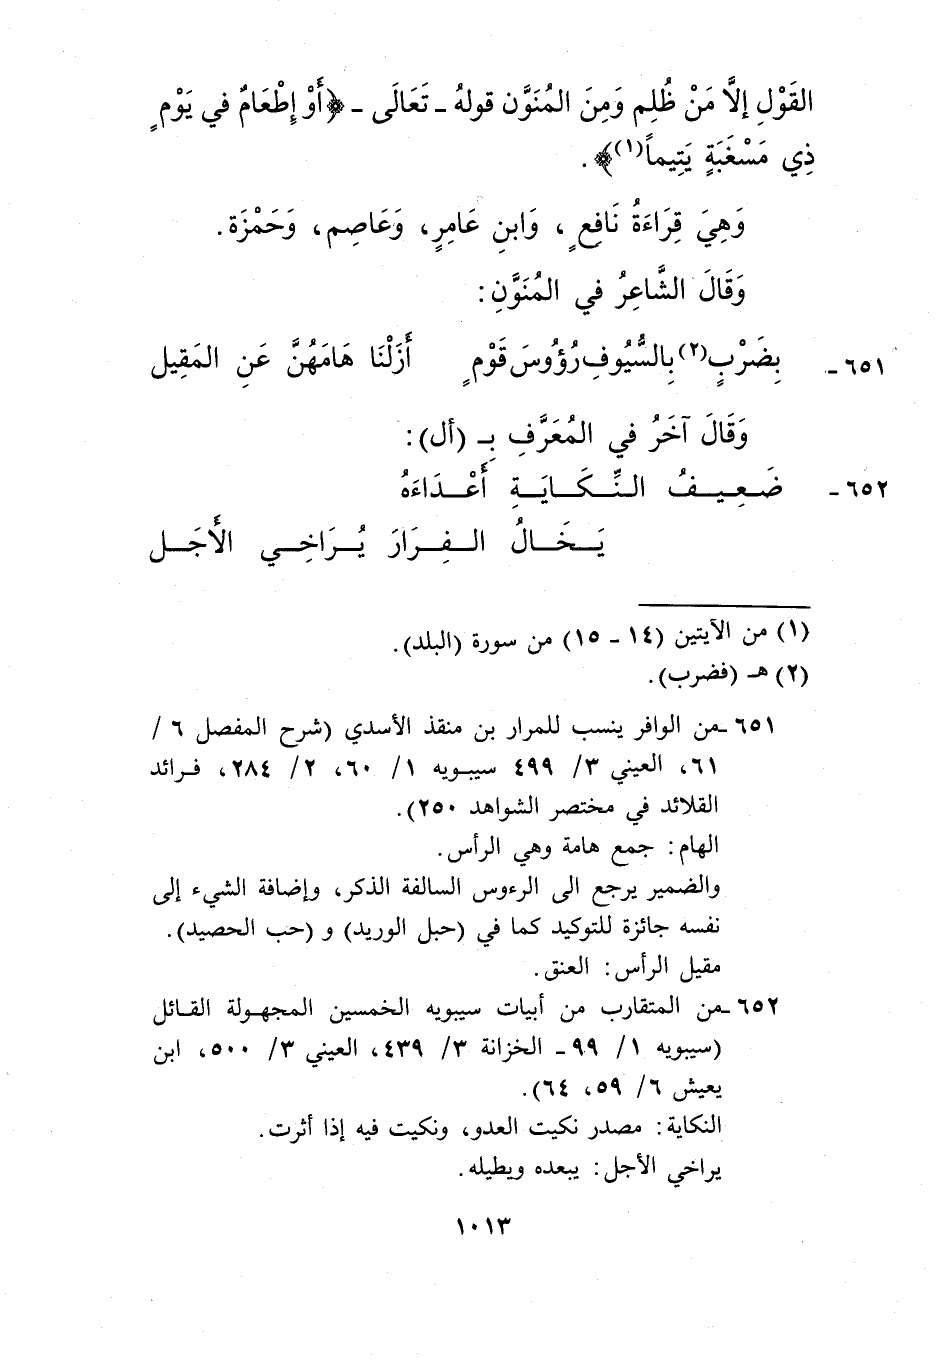 القَوْلِ إلَّا مَنْ ظُلِم وَمِنَ المُنَوَّن قولهُ ـ تَعَالَى ـ ﴿أَوْ إِطْعَامٌ في يَوْمٍ
ذِي مَسْغَبَةٍ يَتِيماً(١)﴾ .
وَهِيَ قِرَاءَةُ نَافِعٍ ، وَابنِ عَامِرٍ، وَعَاصِم، وَحَمْزَة.
وَقَالَ الشَّاعِرُ في المُنَوَّنِ:
٦٥١ـ بِضَرْبٍ(٢) بِالسُّيُوفِ رُؤُوسَ قَوْمٍ أَزَلْنَا هَامَهُنَّ عَنِ المَقِيل
وَقَالَ آخَرُ في المُعَرَّفِ بِـ (أل):
٦٥٢ـ ضَـعِـيـفُ الـنِّـكَـايَـةِ أَعْـدَاءَهُ
يَـخَـالُ الـفِـرَارَ يُـرَاخِـي الأَجَـل
(١) من الآيتين (١٤ ـ ١٥) من سورة (البلد).
(٢) هـ (فضرب).
٦٥١ـ من الوافر ينسب للمرار بن منقذ الأسدي (شرح المفصل ٦ /
٦١، العيني ٣/ ٤٩٩ سيبويه ١/ ٦٠، ٢/ ٢٨٤، فرائد
القلائد في مختصر الشواهد ٢٥٠).
الهام: جمع هامة وهي الرأس.
والضمير يرجع الى الرءوس السالفة الذكر، وإضافة الشيء إلى
نفسه جائزة للتوكيد كما في (حبل الوريد) و (حب الحصيد).
مقيل الرأس: العنق.
٦٥٢ـ من المتقارب من أبيات سيبويه الخمسين المجهولة القائل
(سيبويه ١/ ٩٩ ـ الخزانة ٣/ ٤٣٩، العيني ٣/ ٥٠٠، ابن
يعيش ٦/ ٥٩، ٦٤).
النكاية: مصدر نكيت العدو، ونكيت فيه إذا أثرت.
يراخي الأجل: يبعده ويطيله.
١٠١٣